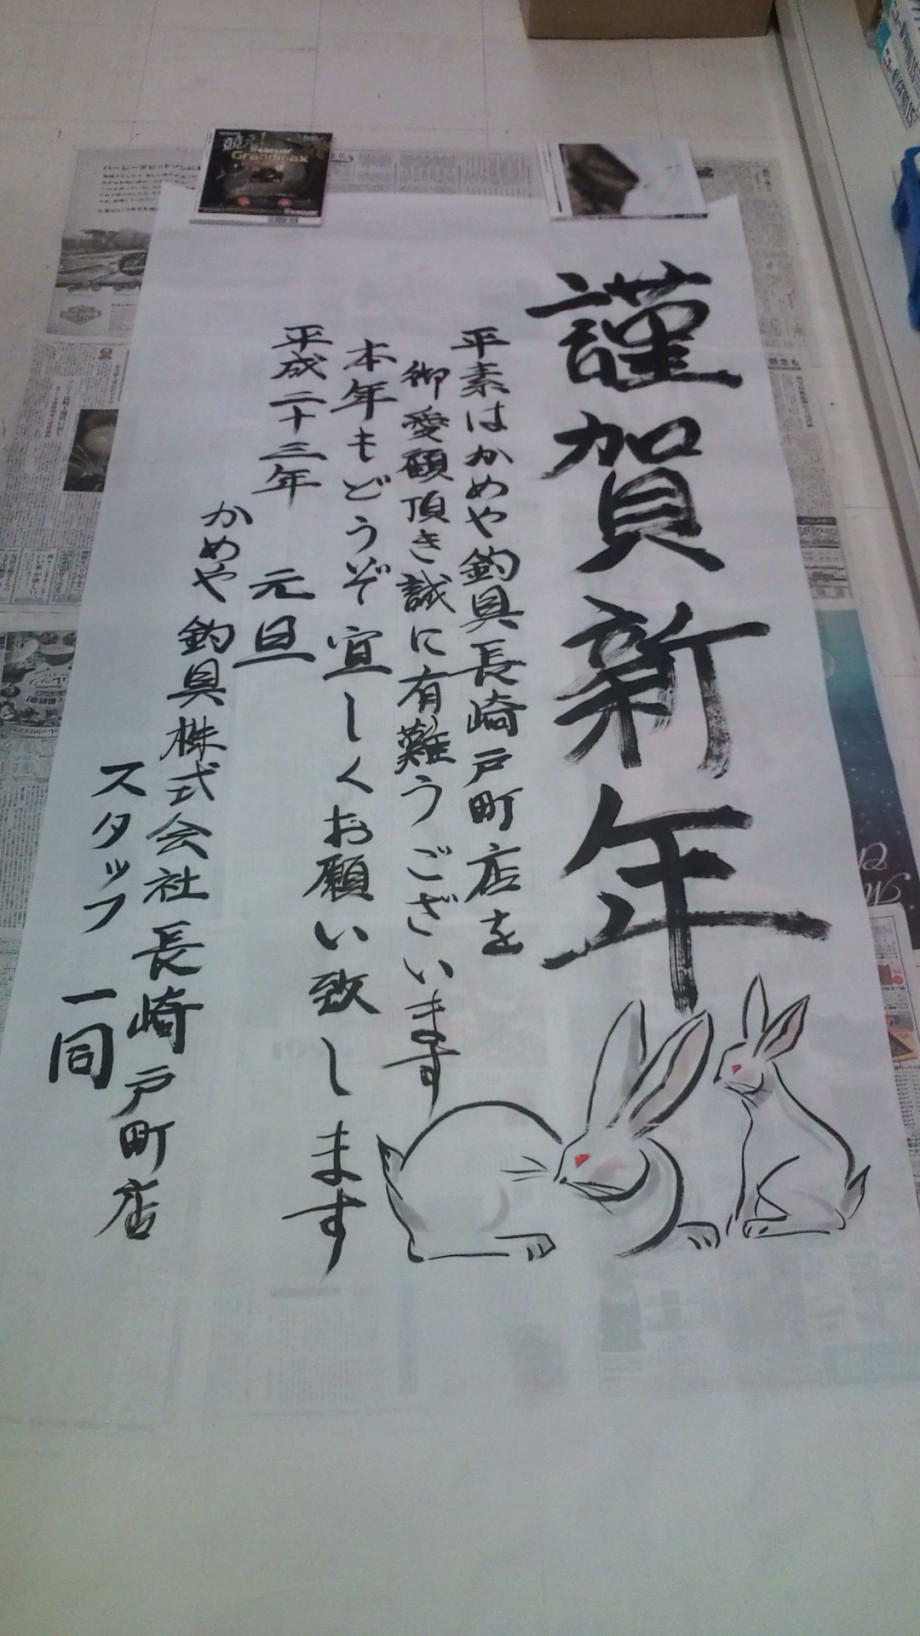 謹賀新年
平素はかめや釣具長崎戸町店を
御愛顧頂き誠に有難うございます
本年もどうぞ宜しくお願い致します
平成二十三年 元旦
かめや釣具株式会社長崎戸町店
スタッフ 一同
Grandmax